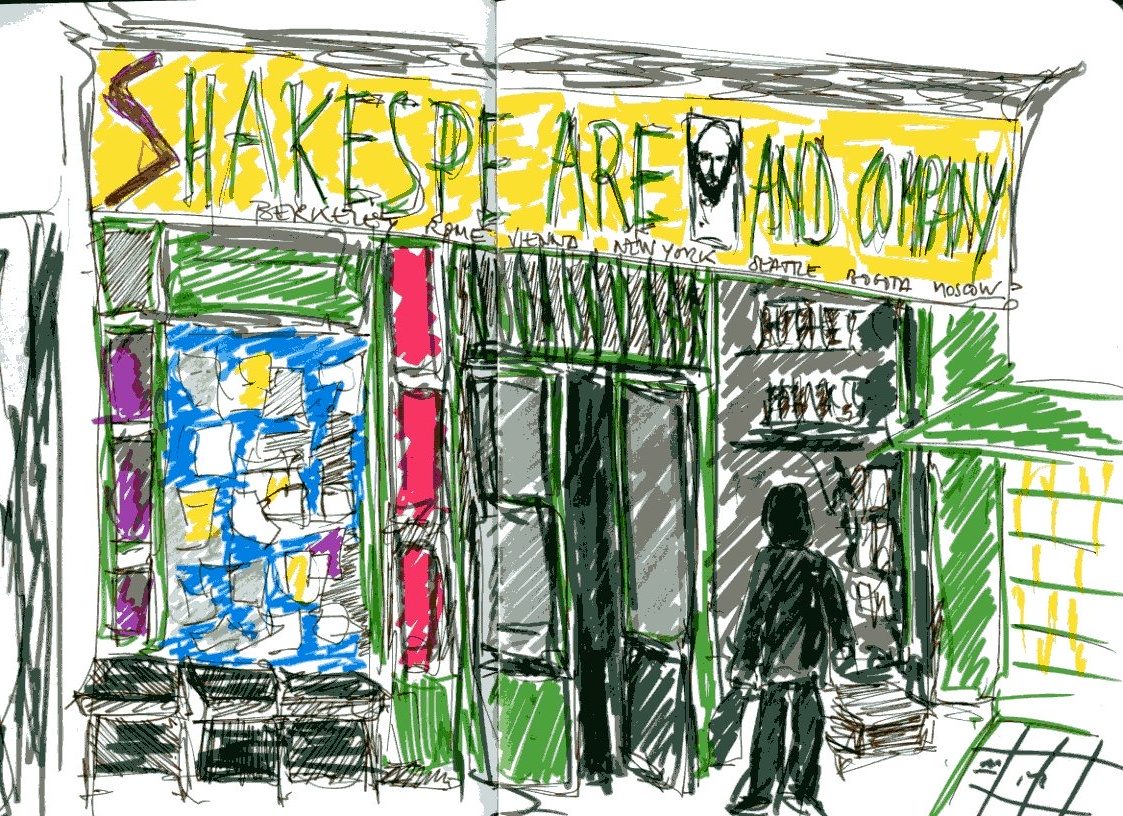 SHAKESPEARE AND COMPANY
BERKELEY ROME VIENNA NEW YORK SEATTLE BOGOTA MOSCOW